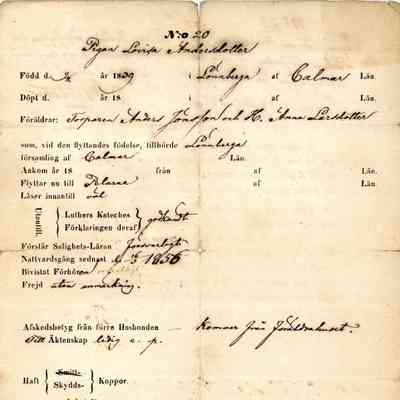 N:o 20
Pigan Lovisa Andersdotter
Född d. år 1839 i Lönneberga af Calmar Län.
Döpt d. år 18 i af Län.
Föräldrar: Torparen Anders Jonsson och H. Anna Larsdotter
som, vid den flyttandes födelse, tillhörde Lönneberga
församling af Calmar Län.
Ankom år 18 från af Län.
Flyttar nu till af Län.
Läser innantill väl
Utantill. Luthers Kateches godkändt
Förklaringen deraf
Förstår Salighets-Läran försvarligt
Nattvardsgång sednast 1856
Bivistat Förhören
Frejd utan anmärkning.
Afskedsbetyg från förre Husbonden — Kommer från Föräldrahuset.
Till Äktenskap ledig e. p.
Haft Smitt- Koppor.
Skydds-